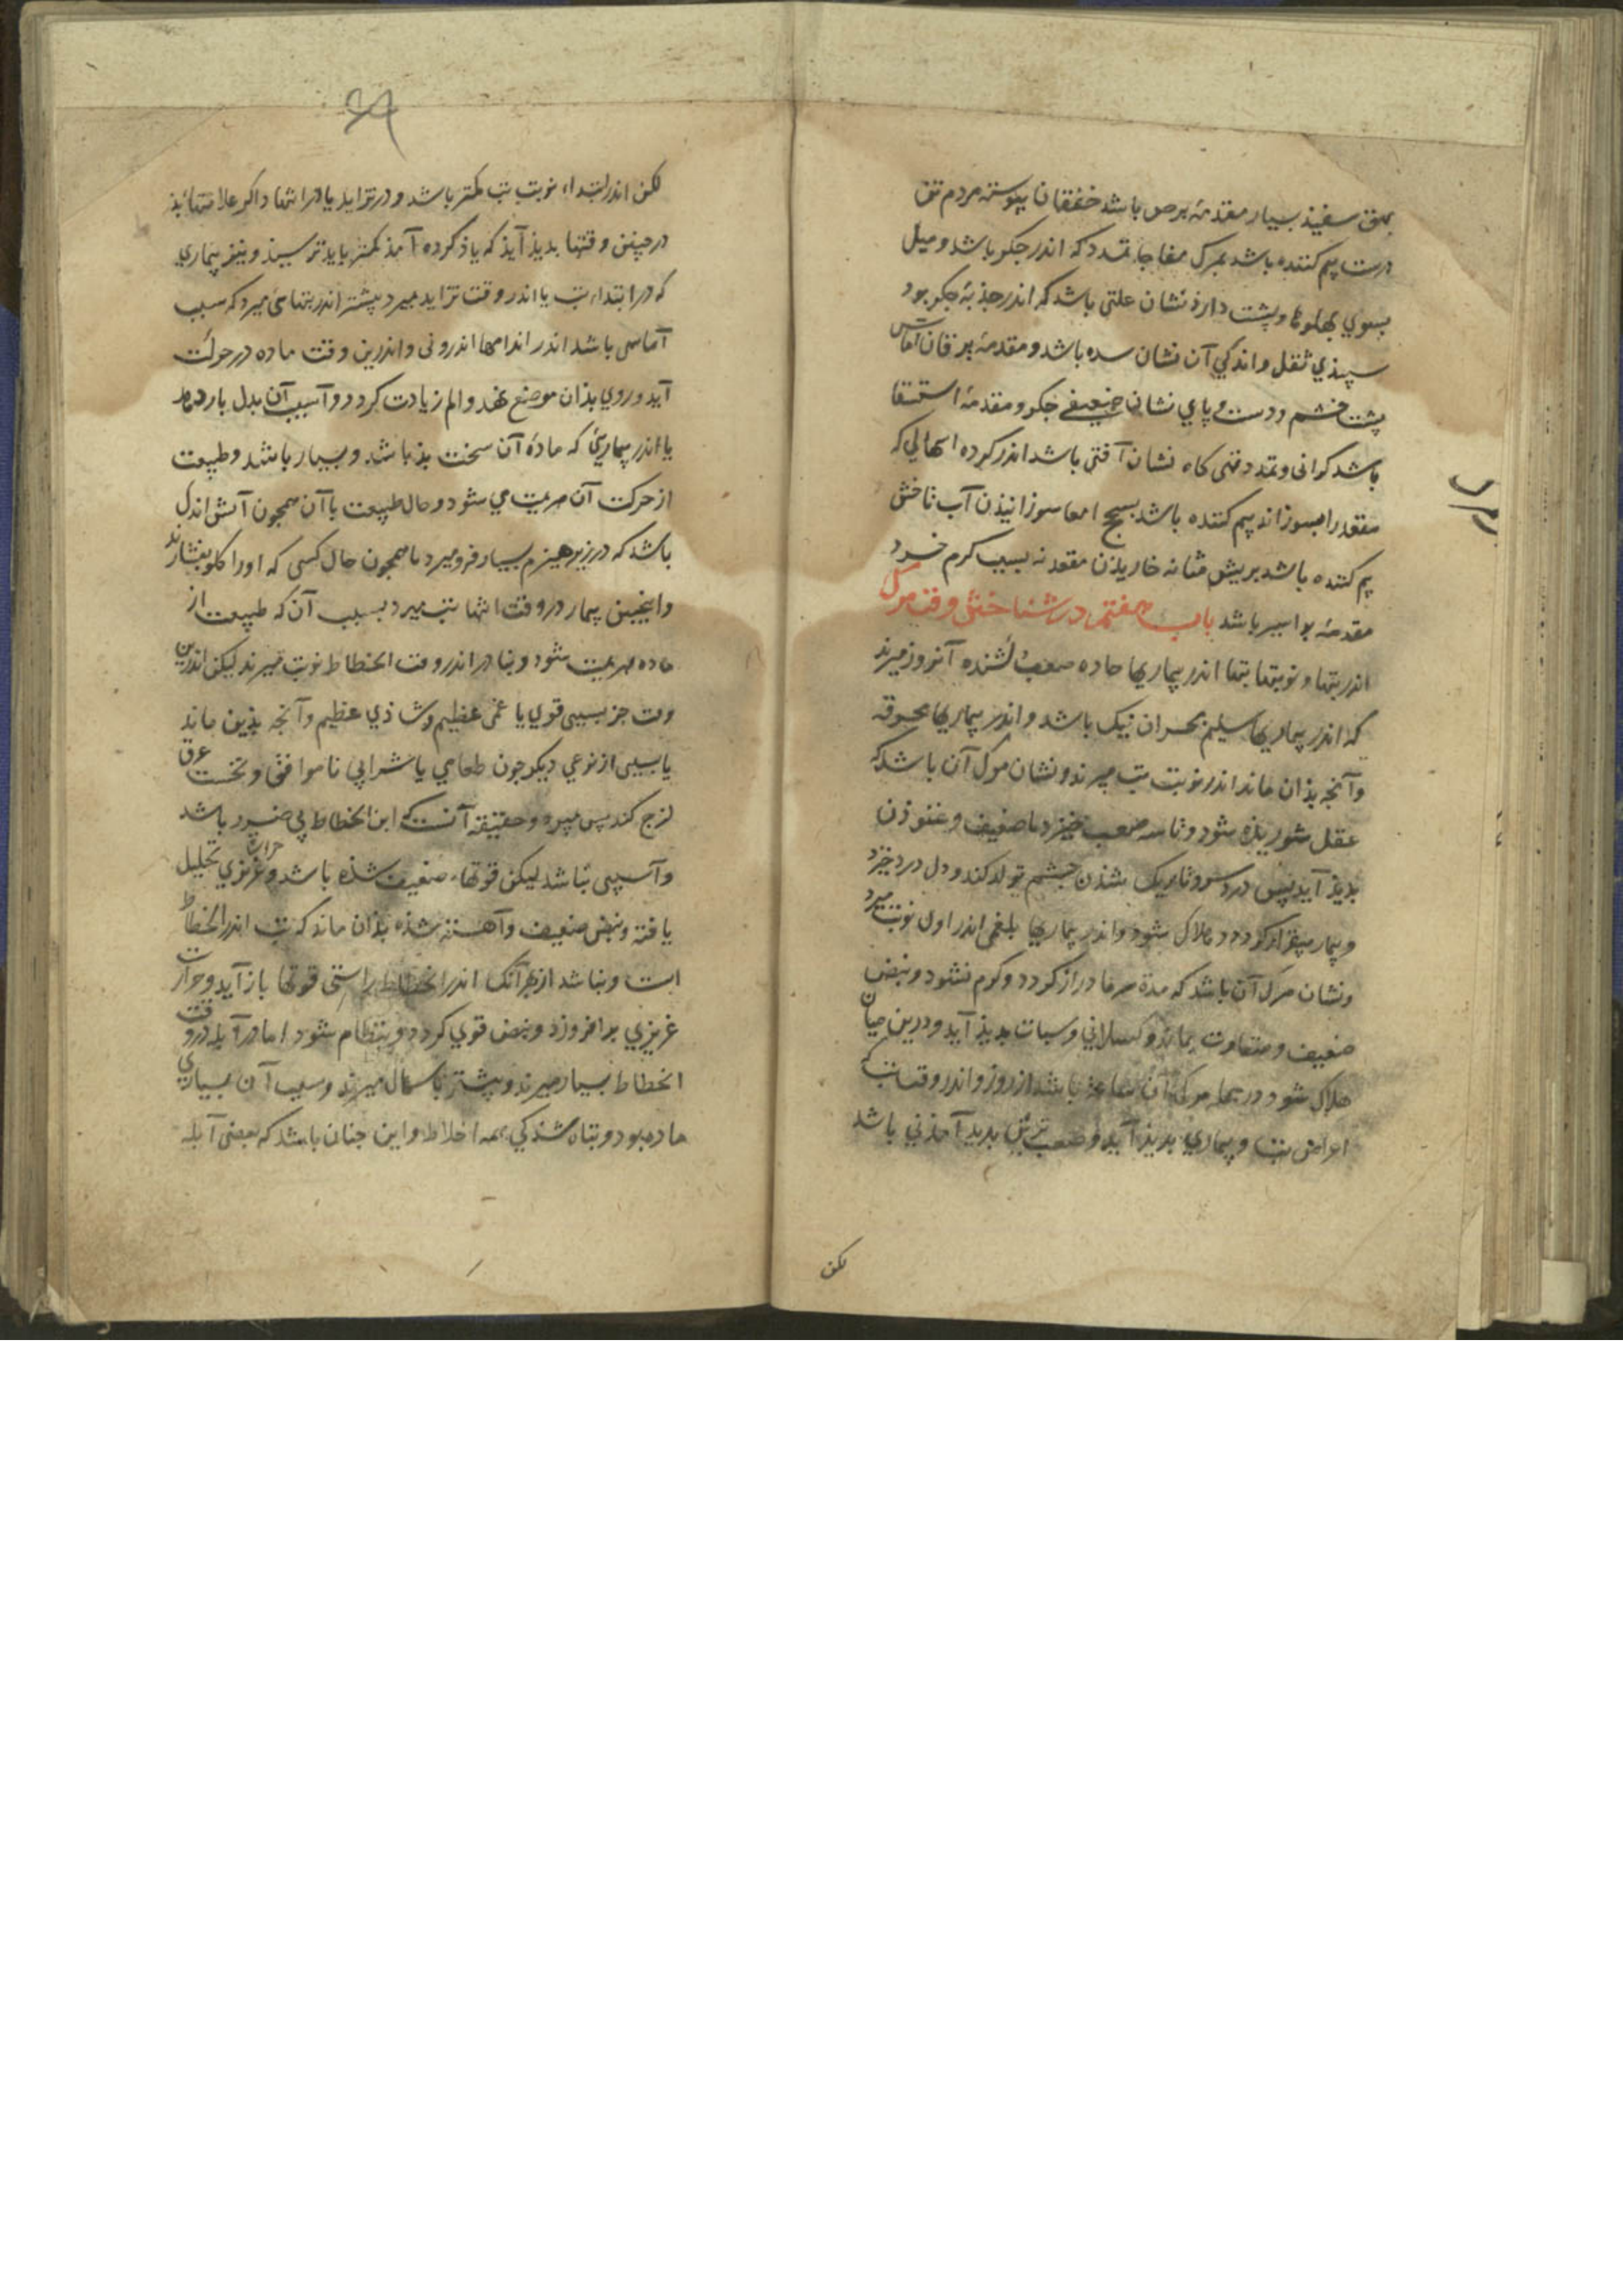 بهق سفیذ بسیار مقدمهٔ برص باشد خفقان پیوسته مردم تن
درست بیم کننده باشد بمرک مفاجا تمدد که اندر جکر باشد و میل
بسوي بهلوها و پشت دارذ نشان علتی باشد که اندر جذبهٔ جکر بود
سپیذي ثقل و اندکي آن نشان سده باشد و مقدمهٔ یرقان آماس
پشت چشم و دست و پاي نشان ضعیفي جکر و مقدمهٔ استسقا
باشد کرانی و تمدد تهی کاه نشان آفتی باشد اندر کرده اسهالي که
مقعد را بسوزاند بیم کننده باشد بسحج امعا سوزانیذن آب تاختن
بیم کننده باشد بریش مثانه خاریذن مقعد نه بسبب کرم خرد
مقدمهٔ بواسیر باشد باب هفتم در شناختن وقت مرک
اندر تبها و نوبتها تبها اندر بیماریها حاده صعب کشنده آنروز میرند
که اندر بیماریها سلیم بحران نیک باشد و اندر بیماریها محرقه
وآنجه بذان ماند اندر نوبت تب میرند و نشان مرک آن باشد که
عقل شوریذه شود و تاسه صعب خیزد یا ضعیف و غنوذن
بدیذ آید پس درد سر و تاریک شذن جشم تولد کند و دل درد خیزد
و بیمار بیقرار کردد و هلاک شود و اندر بیماریها بلغمی اندر اول نوبت میرد
و نشان مرک آن باشد که مدة سرما دراز کردد و کرم نشود و نبض
ضعیف و متفاوت بماند و کسلاني و سبات بدیذ آید و درین میان
هلاک شود در جمله مرک آن ساعت باشد از روز و اندر وقت تب که
اعراض تب و بیماري بدیذ آید و صعب‌ترین بدید آمذني باشد
لکن
لکن اندر ابتداء نوبت تب کمتر باشد و در تزاید یا در انتها و اکر علامتها بذ
در جنین وقتها بدیذ آیذ که یاذ کرده آمذ کمتر باید ترسیذ و نیز بیماري
که در ابتداء تب یا اندر وقت تزاید میرد بیشتر اندر تبهائی میرد که سبب
آماسی باشد اندر اندامها اندرونی و اندرین وقت ماده در حرکت
آید و روي بذان موضع نهد و الم زیادت کردد و آسیب آن بدل باز دهد
یا اندر بیماریٔ که مادهٔ آن سخت بذ باشد و بسیار باشد و طبیعت
از حرکت آن هزیمت مي شود و حال طبیعت با آن همجون آتش اندک
باشد که در زیر هیزم بسیار فرو میرد یا همجون حال کسی که او را کلو بفشارند
و اینجنین بیمار در وقت انتها تب میرد بسبب آن که طبیعت از
ماده هزیمت شود و بنادر اندر وقت انحطاط نوبت میرند لیکن اندرین
وقت جز بسببی قوي یا غمی عظیم و شاذي عظیم و آنجه بذین ماند
یا بسببی از نوعي دیکر جون طعامي یا شرابي ناموافق و نخست عرق
لزج کند پس میرد و حقیقة آنست که این انحطاط بي ضرر باشد
و آسیبی نباشد لیکن قوتهاء ضعیف شذه باشد و حرارت غریزي تحلیل
یافته و نبض ضعیف و آهسته شذه بذان ماند که تب اندر انحطاط
است و نباشد از بهر آنک اندر انحطاط راستی قوتها باز آید و حرارت
غریزي برافروزد و نبض قوي کردد و بنظام شود اما در آبله در وقت
انحطاط بسیار میرند و بیشتر باسهال میرند و سبب آن بسیاري
ماده بود و تباه شذکي همه اخلاط و این جنان باشد که بعضی آبله